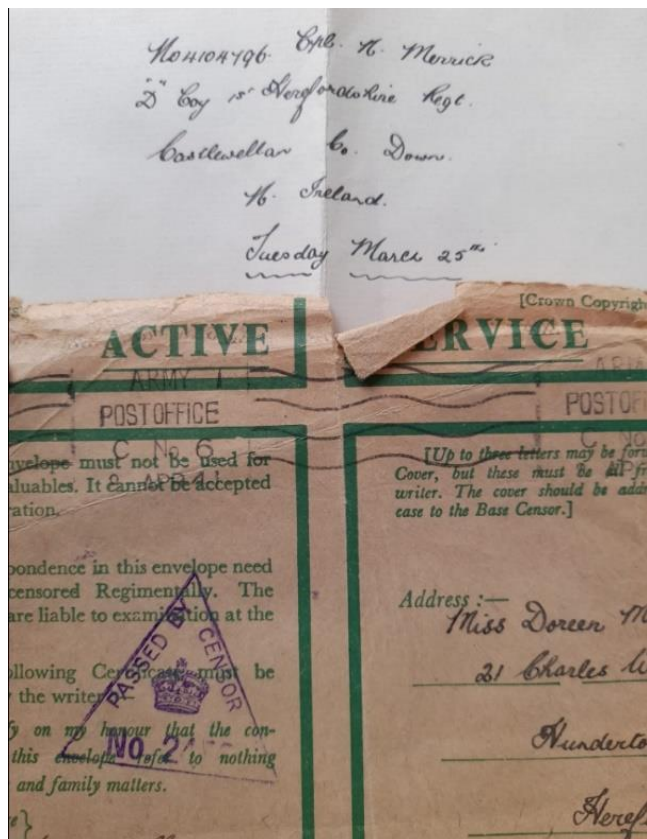 No 4104796. Cpl. N. Merrick
"D" Coy 1st Herefordshire Regt.
Castlewellan Co. Down.
N. Ireland.
Tuesday March 25th
[Crown Copyrigh
ACTIVE
ERVICE
ARMY
POST OFFICE
C No 6
8 APR 41
POST OF
C No
nvelope must not be used for
aluables. It cannot be accepted
ration.
pondence in this envelope need
censored Regimentally. The
are liable to examination at the
ollowing Certificate must be
y the writer
fy on my honour that the con-
this envelope refer to nothing
and family matters.
e}
PASSED BY CENSOR
No. 2
[Up to three letters may be for
Cover, but these must be all fr
writer. The cover should be addr
case to the Base Censor.]
Address :—
Miss Doreen M
21 Charles W
Hunderto
Heref